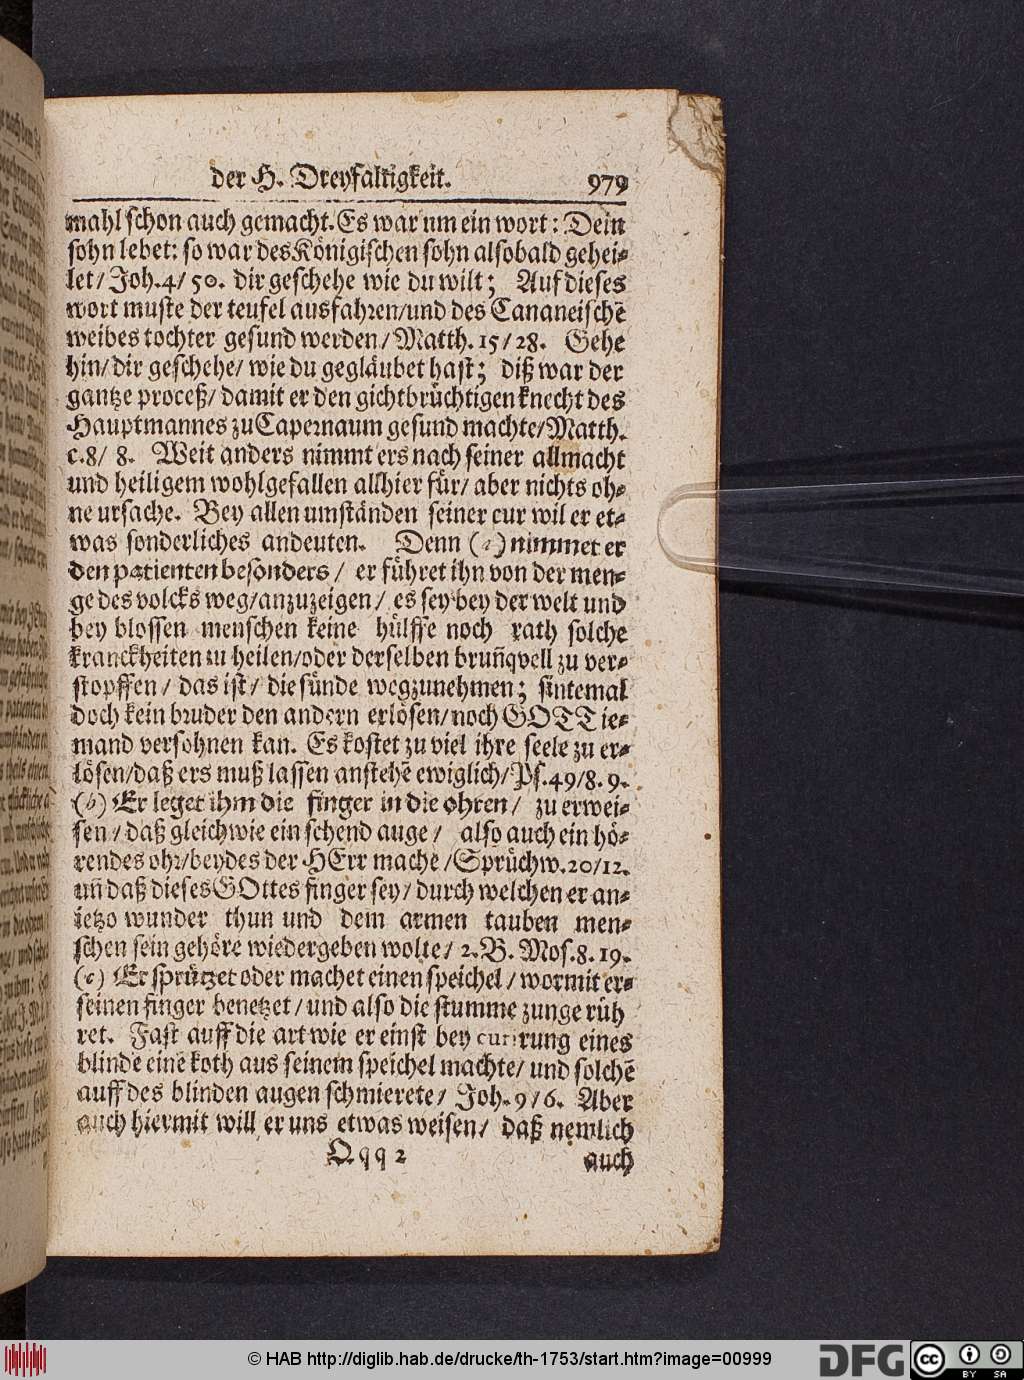 der H. Dreyfaltigkeit. 979
mahl schon auch gemacht. Es war um ein wort: Dein
sohn lebet: so war des Königischen sohn alsobald gehei-
let/ Joh. 4/ 50. dir geschehe wie du wilt; Auf dieses
wort muste der teufel ausfahren/ und des Cananeischē
weibes tochter gesund werden/ Matth. 15/ 28. Gehe
hin/ dir geschehe/ wie du gegläubet hast; diß war der
gantze proceß/ damit er den gichtbrüchtigen knecht des
Hauptmannes zu Capernaum gesund machte/ Matth.
c. 8/ 8. Weit anders nimmt ers nach seiner allmacht
und heiligem wohlgefallen allhier für/ aber nichts oh-
ne ursache. Bey allen umständen seiner cur wil er et-
was sonderliches andeuten. Denn (a) nimmet er
den patienten besonders/ er führet ihn von der men-
ge des volcks weg/ anzuzeigen/ es sey bey der welt und
bey blossen menschen keine hülffe noch rath solche
kranckheiten zu heilen/ oder derselben bruñqvell zu ver-
stopffen/ das ist/ die sünde wegzunehmen; sintemal
doch kein bruder den andern erlösen/ noch GOTT ie-
mand versohnen kan. Es kostet zu viel ihre seele zu er-
lösen/ daß ers muß lassen anstehē ewiglich/ Ps. 49/ 8. 9.
(b) Er leget ihm die finger in die ohren/ zu erwei-
sen/ daß gleichwie ein sehend auge/ also auch ein hö-
rendes ohr/ beydes der HErr mache/ Sprüchw. 20/ 12.
uñ daß dieses GOttes finger sey/ durch welchen er an-
ietzo wunder thun und dem armen tauben men-
schen sein gehöre wiedergeben wolte/ 2. B. Mos. 8. 19.
(c) Er sprützet oder machet einen speichel/ wormit er-
seinen finger benetzet/ und also die stumme zunge rüh
ret. Fast auff die art wie er einst bey curirung eines
blinde einē koth aus seinem speichel machte/ und solchē
auff des blinden augen schmierete/ Joh. 9/ 6. Aber
auch hiermit will er uns etwas weisen/ daß nemlich
Qqq 2 auch
© HAB http://diglib.hab.de/drucke/th-1753/start.htm?image=00999
DFG
cc BY SA